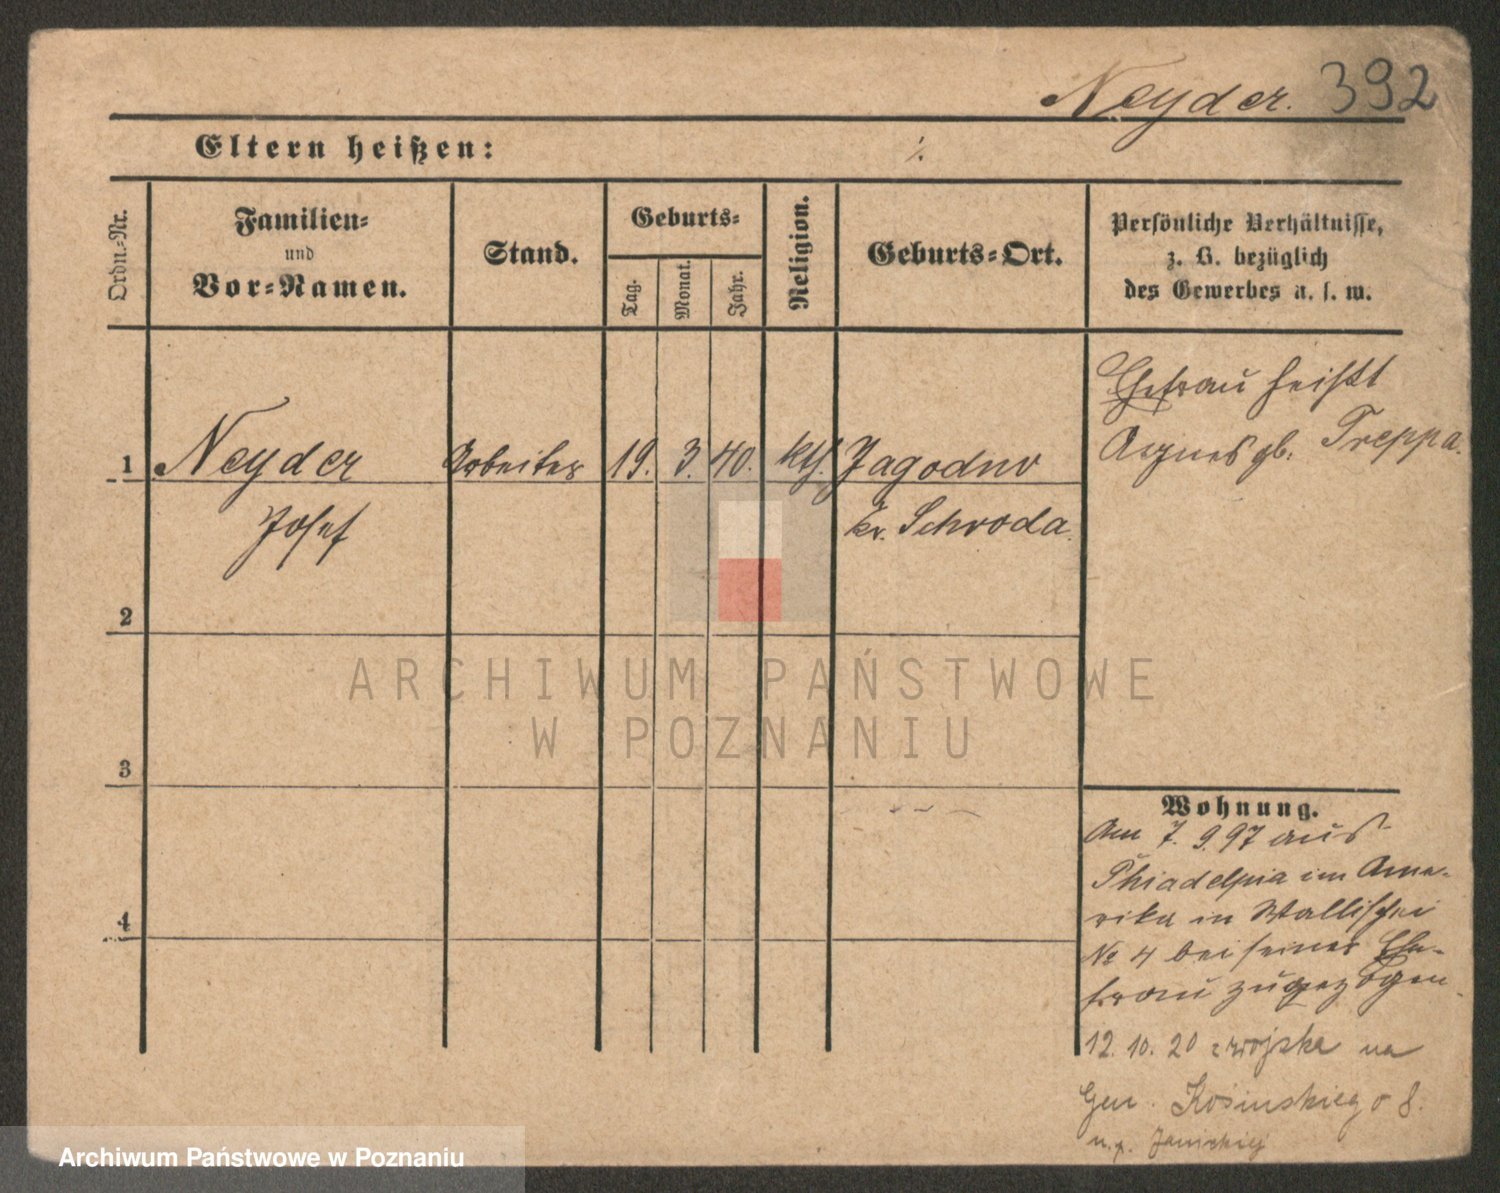 Neyder. 392
Eltern heißen: ⁒
Ordn.-Nr.
Familien-
und
Vor-Namen.
Stand.
Geburts-
Tag.
Monat.
Jahr.
Religion.
Geburts-Ort.
Persönliche Verhältnisse,
z. B. bezüglich
des Gewerbes u. s. w.
Ehefrau heißt
Agnes gb. Treppa.
1 Neyder Arbeiter 19. 3. 40. kth. Jagodno
Josef kr. Schroda.
2
3
4
Wohnung.
Am 7. 9. 97 aus
Phiadelpia im Ame-
rika in Wallischei
No 4 bei seiner Ehe-
frau zugezogen.
12. 10. 20 z wojska na
Gen. Kosinskiego 8.
ARCHIWUM PAŃSTWOWE
W POZNANIU
Archiwum Państwowe w Poznaniu